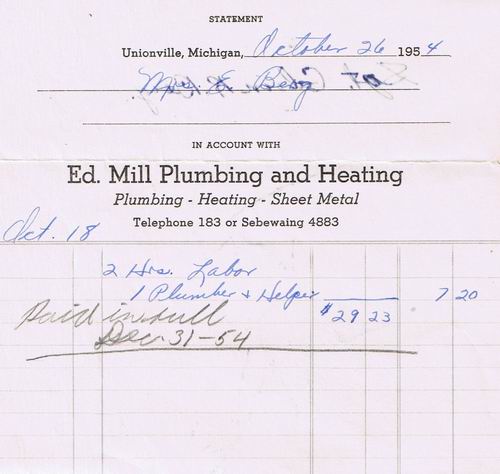 STATEMENT
Unionville, Michigan, October 26 1954
Mrs. E. Berg
IN ACCOUNT WITH
Ed. Mill Plumbing and Heating
Plumbing - Heating - Sheet Metal
Telephone 183 or Sebewaing 4883
Oct. 18
2 Hrs. Labor
1 Plumber & Helper 7 20
$29 23
Paid in full
Dec 31-54